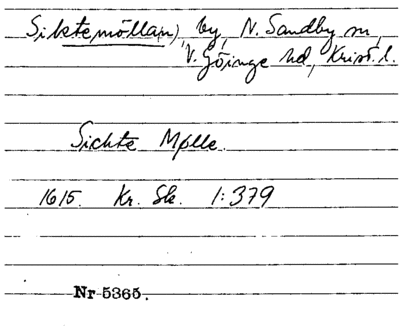 Siktemöllan), by, N. Sandby sn,
V. Göinge hd, Krist. l.
Sichte Mølle.
1615. Kr. Sk. 1:379
Nr 5365.